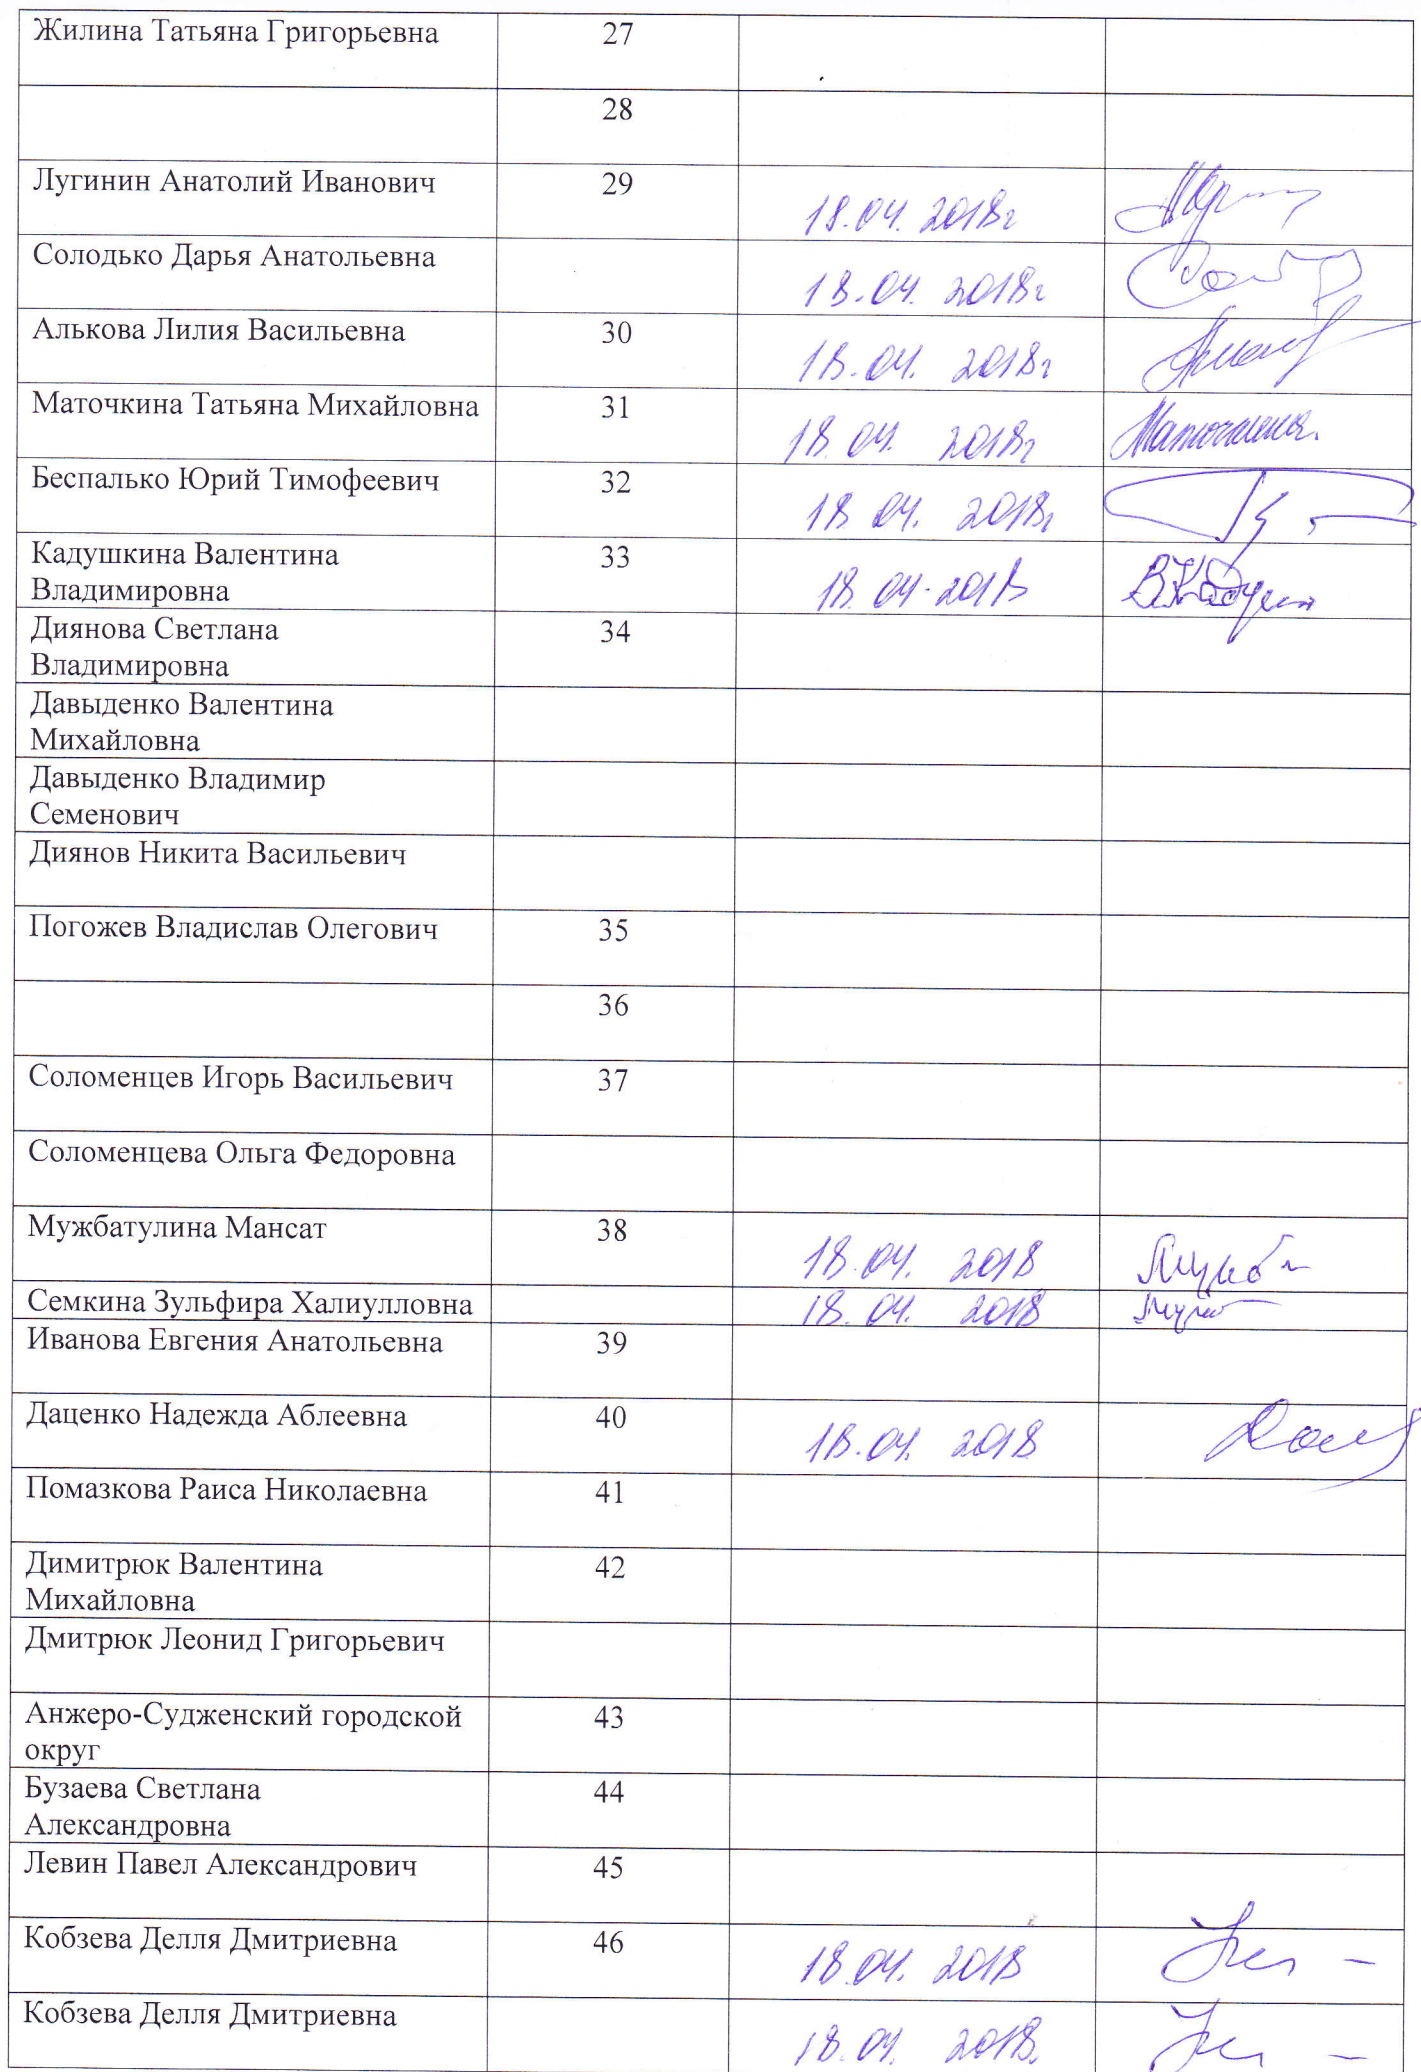 Жилина Татьяна Григорьевна 27
28
Лугинин Анатолий Иванович 29 18.04.2018г
Солодько Дарья Анатольевна 18.04.2018г
Алькова Лилия Васильевна 30 18.04.2018г
Маточкина Татьяна Михайловна 31 18.04.2018г Маточкина.
Беспалько Юрий Тимофеевич 32 18 04. 2018г
Кадушкина Валентина 33 18.04.2018
Владимировна
Диянова Светлана 34
Владимировна
Давыденко Валентина
Михайловна
Давыденко Владимир
Семенович
Диянов Никита Васильевич
Погожев Владислав Олегович 35
36
Соломенцев Игорь Васильевич 37
Соломенцева Ольга Федоровна
Мужбатулина Мансат 38 18.04. 2018
Семкина Зульфира Халиулловна 18.04. 2018
Иванова Евгения Анатольевна 39
Даценко Надежда Аблеевна 40 18.04. 2018
Помазкова Раиса Николаевна 41
Димитрюк Валентина 42
Михайловна
Дмитрюк Леонид Григорьевич
Анжеро-Судженский городской 43
округ
Бузаева Светлана 44
Александровна
Левин Павел Александрович 45
Кобзева Делля Дмитриевна 46 18.04. 2018
Кобзева Делля Дмитриевна 18.04. 2018.